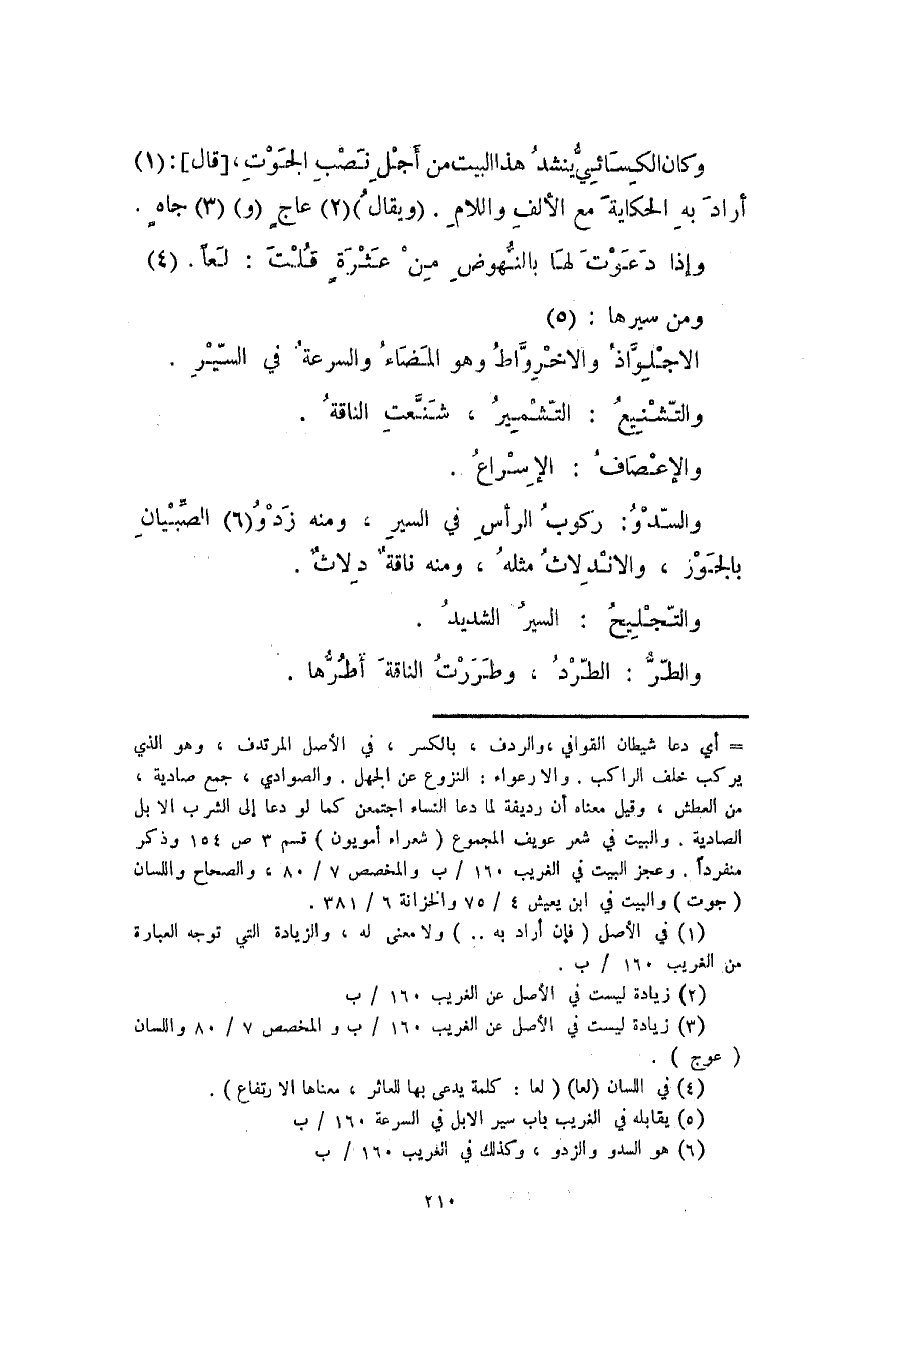 وكان الكِسَائيُّ يُنشدُ هذا البيت من أَجْلِ نَصْبِ الجَوْتِ ، [قال] : (١)
أرادَ بهِ الحكايةَ مع الألفِ واللامِ . (ويقالُ)(٢) عاجٍ (و) (٣) جاهٍ .
وإذا دَعَوْتَ لهَا بالنُّهوضِ مِنْ عَثْرَةٍ قُلْتَ : لَعاً . (٤)
ومن سيرها : (٥)
الاجْلِوَّاذُ والاخْرِوَّاطُ وهو المَضَاءُ والسرعةُ في السَّيْرِ .
والتَّشْنِيعُ : التَّشْمِيرُ ، شَنَّعتِ الناقةُ .
والإعْصَافُ : الإسْراعُ .
والسَّدْوُ : ركوبُ الرأسِ في السيرِ ، ومنه زَدْوُ(٦) الصِّبْيانِ
بالجَوْزِ ، والانْدِلاثُ مثلهُ ، ومنه ناقةٌ دِلاثٌ .
والتَّجْلِيحُ : السيرُ الشديدُ .
والطَّرُّ : الطَّرْدُ ، وطَرَرْتُ الناقةَ أَطُرُّها .
= أي دعا شيطان القوافي ،والردف ، بالكسر ، في الأصل المرتدف ، وهو الذي
يركب خلف الراكب . والارعواء : النزوع عن الجهل . والصوادي ، جمع صادية ،
من العطش ، وقيل معناه أن رديفة لما دعا النساء اجتمعن كما لو دعا إلى الشرب الابل
الصادية . والبيت في شعر عويف المجموع ( شعراء أمويون ) قسم ٣ ص ١٥٤ وذكر
منفرداً . وعجز البيت في الغريب ١٦٠ / ب والمخصص ٧ / ٨٠ ، والصحاح واللسان
( جوت ) والبيت في ابن يعيش ٤ / ٧٥ والخزانة ٦ / ٣٨١ .
(١) في الأصل ( فإن أراد به .. ) ولا معنى له ، والزيادة التي توجه العبارة
من الغريب ١٦٠ / ب .
(٢) زيادة ليست في الأصل عن الغريب ١٦٠ / ب
(٣) زيادة ليست في الأصل عن الغريب ١٦٠ / ب و المخصص ٧ / ٨٠ واللسان
( عوج ) .
(٤) في اللسان (لعا) ( لعا : كلمة يدعى بها للعاثر ، معناها الارتفاع ) .
(٥) يقابله في الغريب باب سير الابل في السرعة ١٦٠ / ب
(٦) هو السدو والزدو ، وكذلك في الغريب ١٦٠ / ب
٢١٠